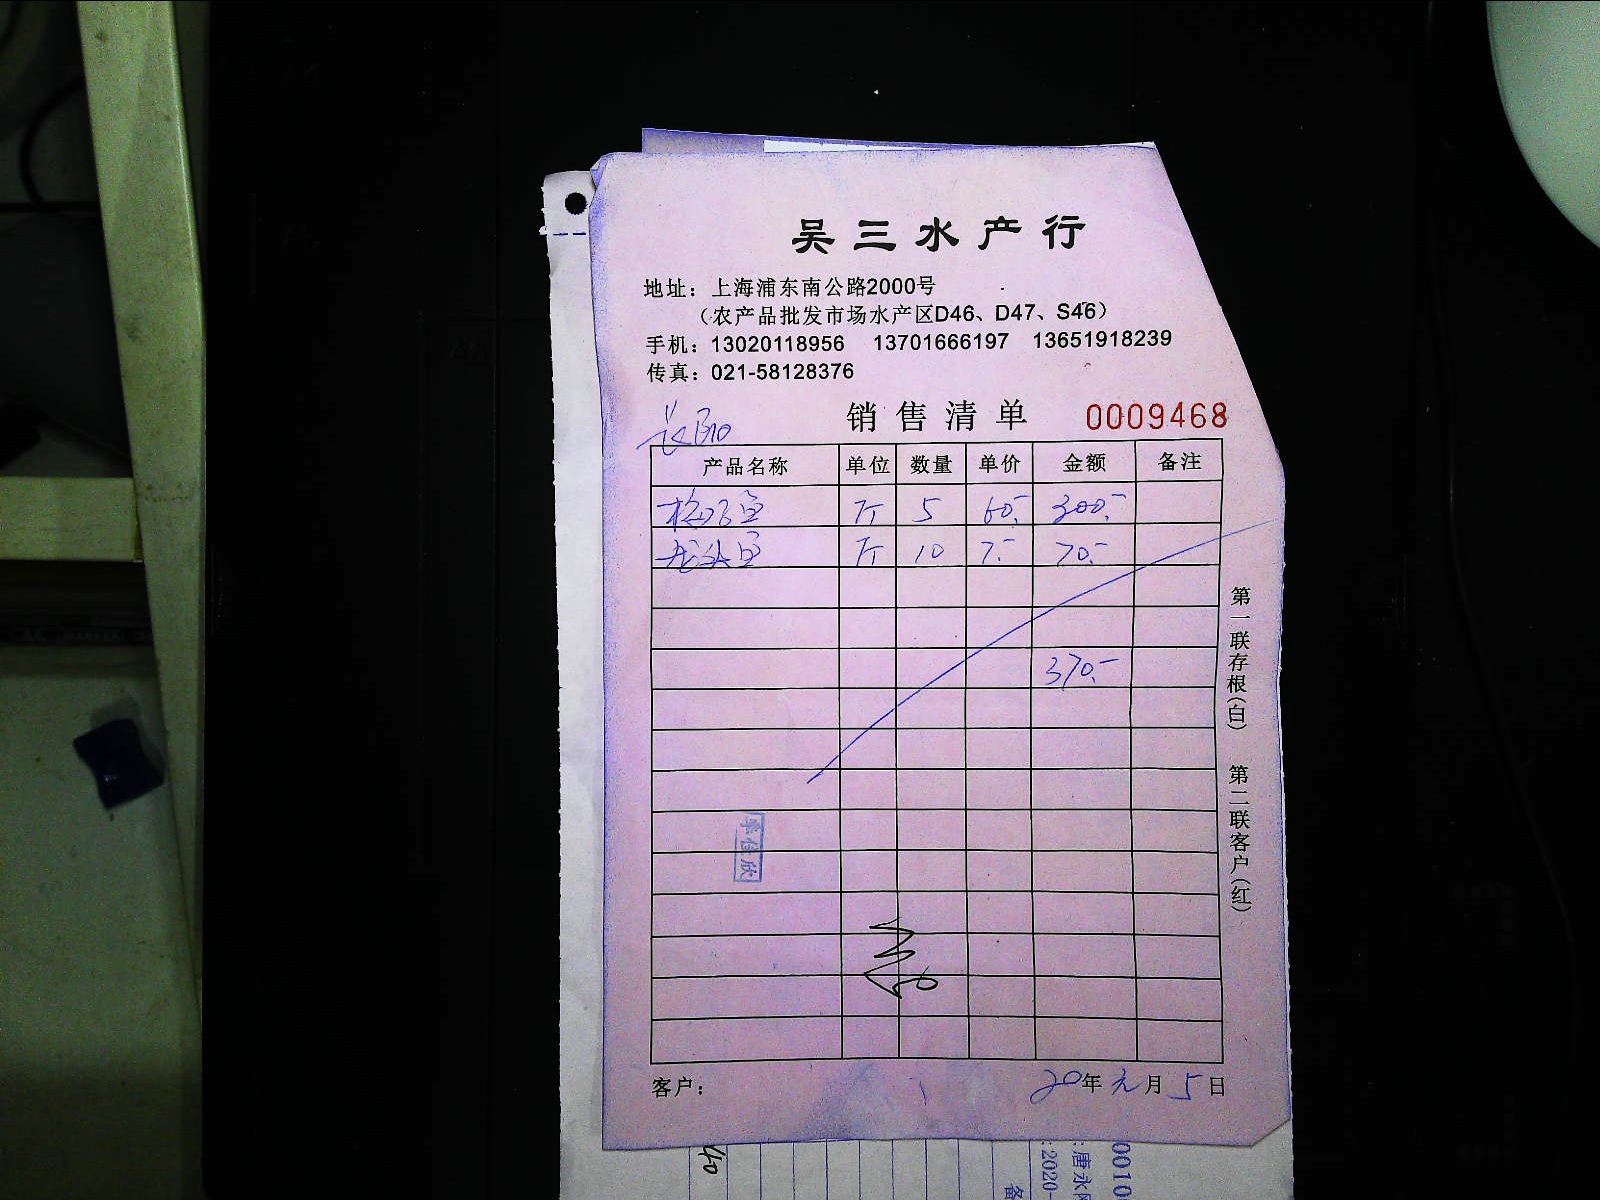 吴三水产行
地址：上海浦东南公路2000号
（农产品批发市场水产区D46、D47、S46）
手机：13020118956 13701666197 13651918239
传真：021-58128376
销售清单 0009468
产品名称 单位 数量 单价 金额 备注
梅子鱼 斤 5 60.- 300.-
龙头鱼 斤 10 7.- 70.-
370.-
第一联存根（白） 第二联客户（红）
客户： 20年元月5日
40
唐永
:2020-
0010
备